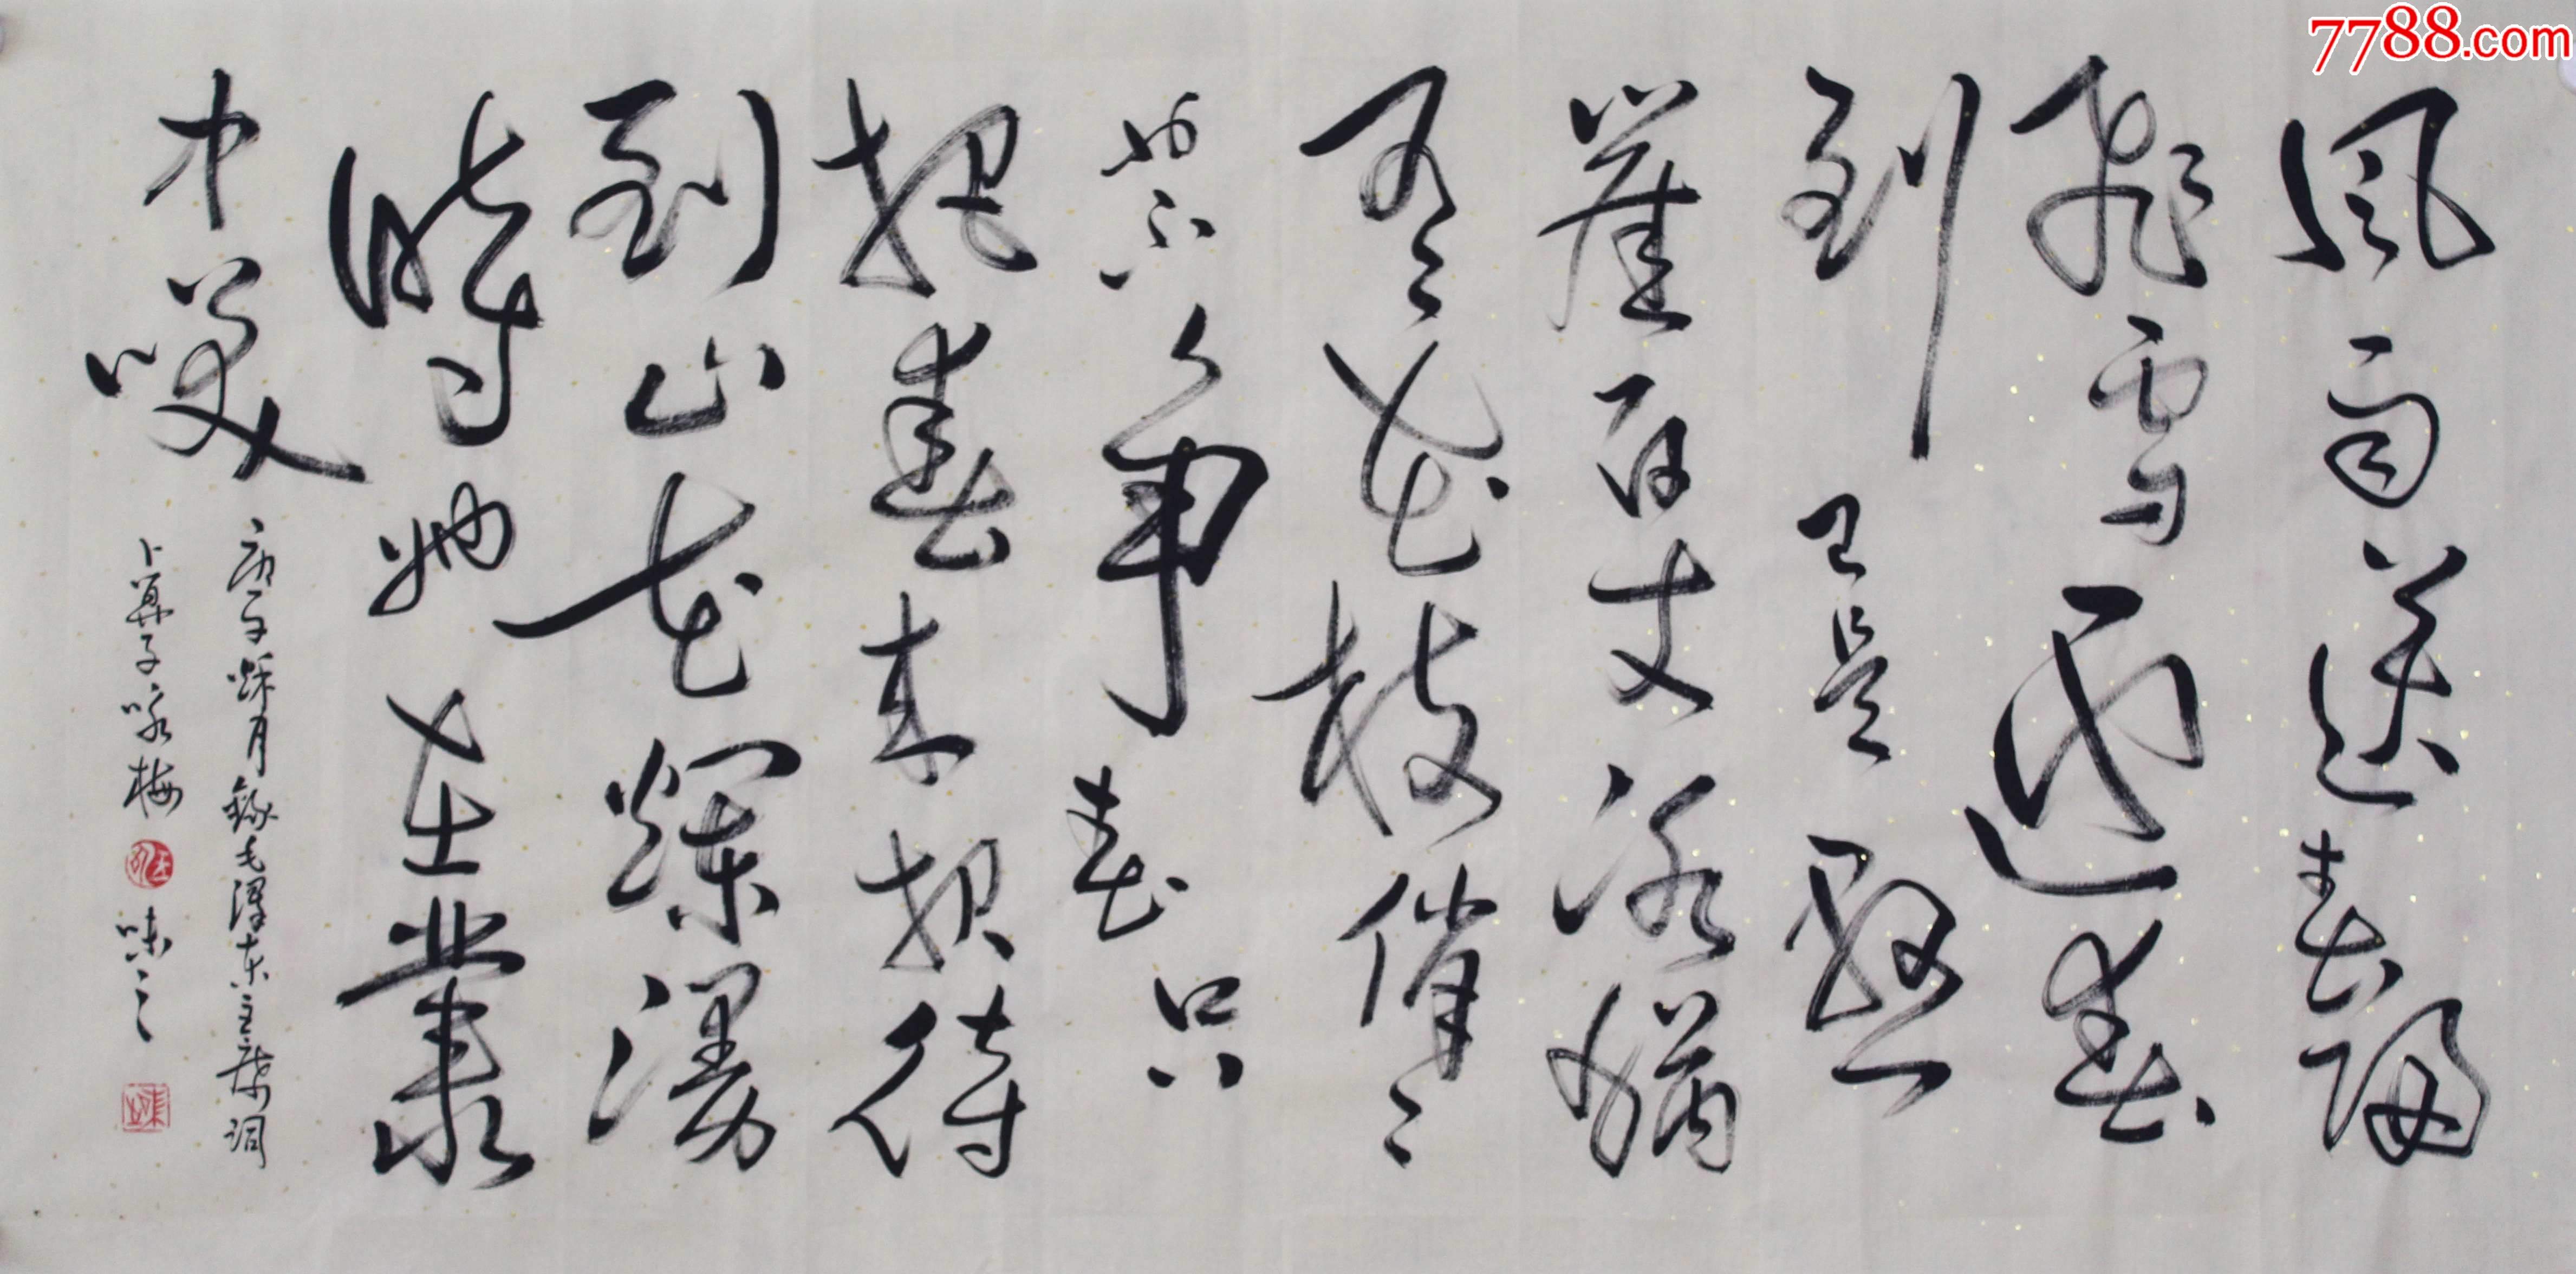 7788.com
風雨送春歸
飛雪迎春
到已是懸
崖百丈冰猶
有花枝俏〻
也不争春只
把春来报待
到山花爛漫
時她在叢
中咲
庚子秋月錄毛澤东主席詞
卜算子咏梅 味之